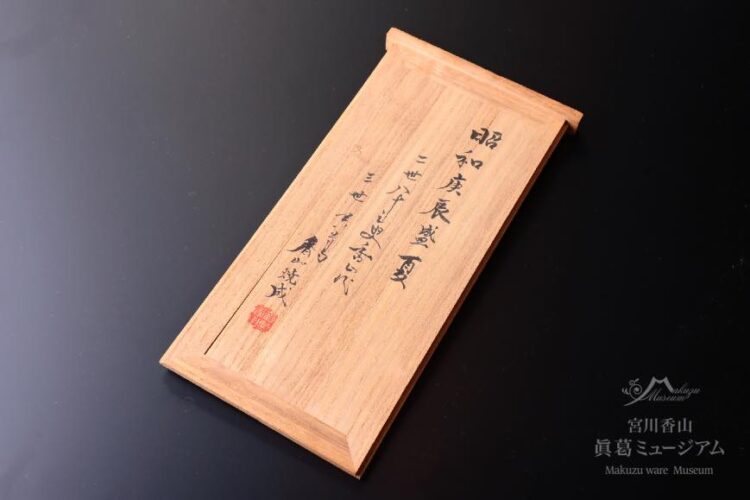 昭和庚辰盛夏
二世八十之叟香山代
三世
香山焼成
Makuzu
Museum
宮川香山
眞葛ミュージアム
Makuzu ware Museum